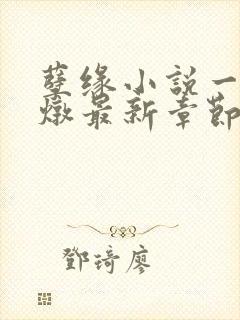 孽缘小说一
燉最新章節
鄧琦廖